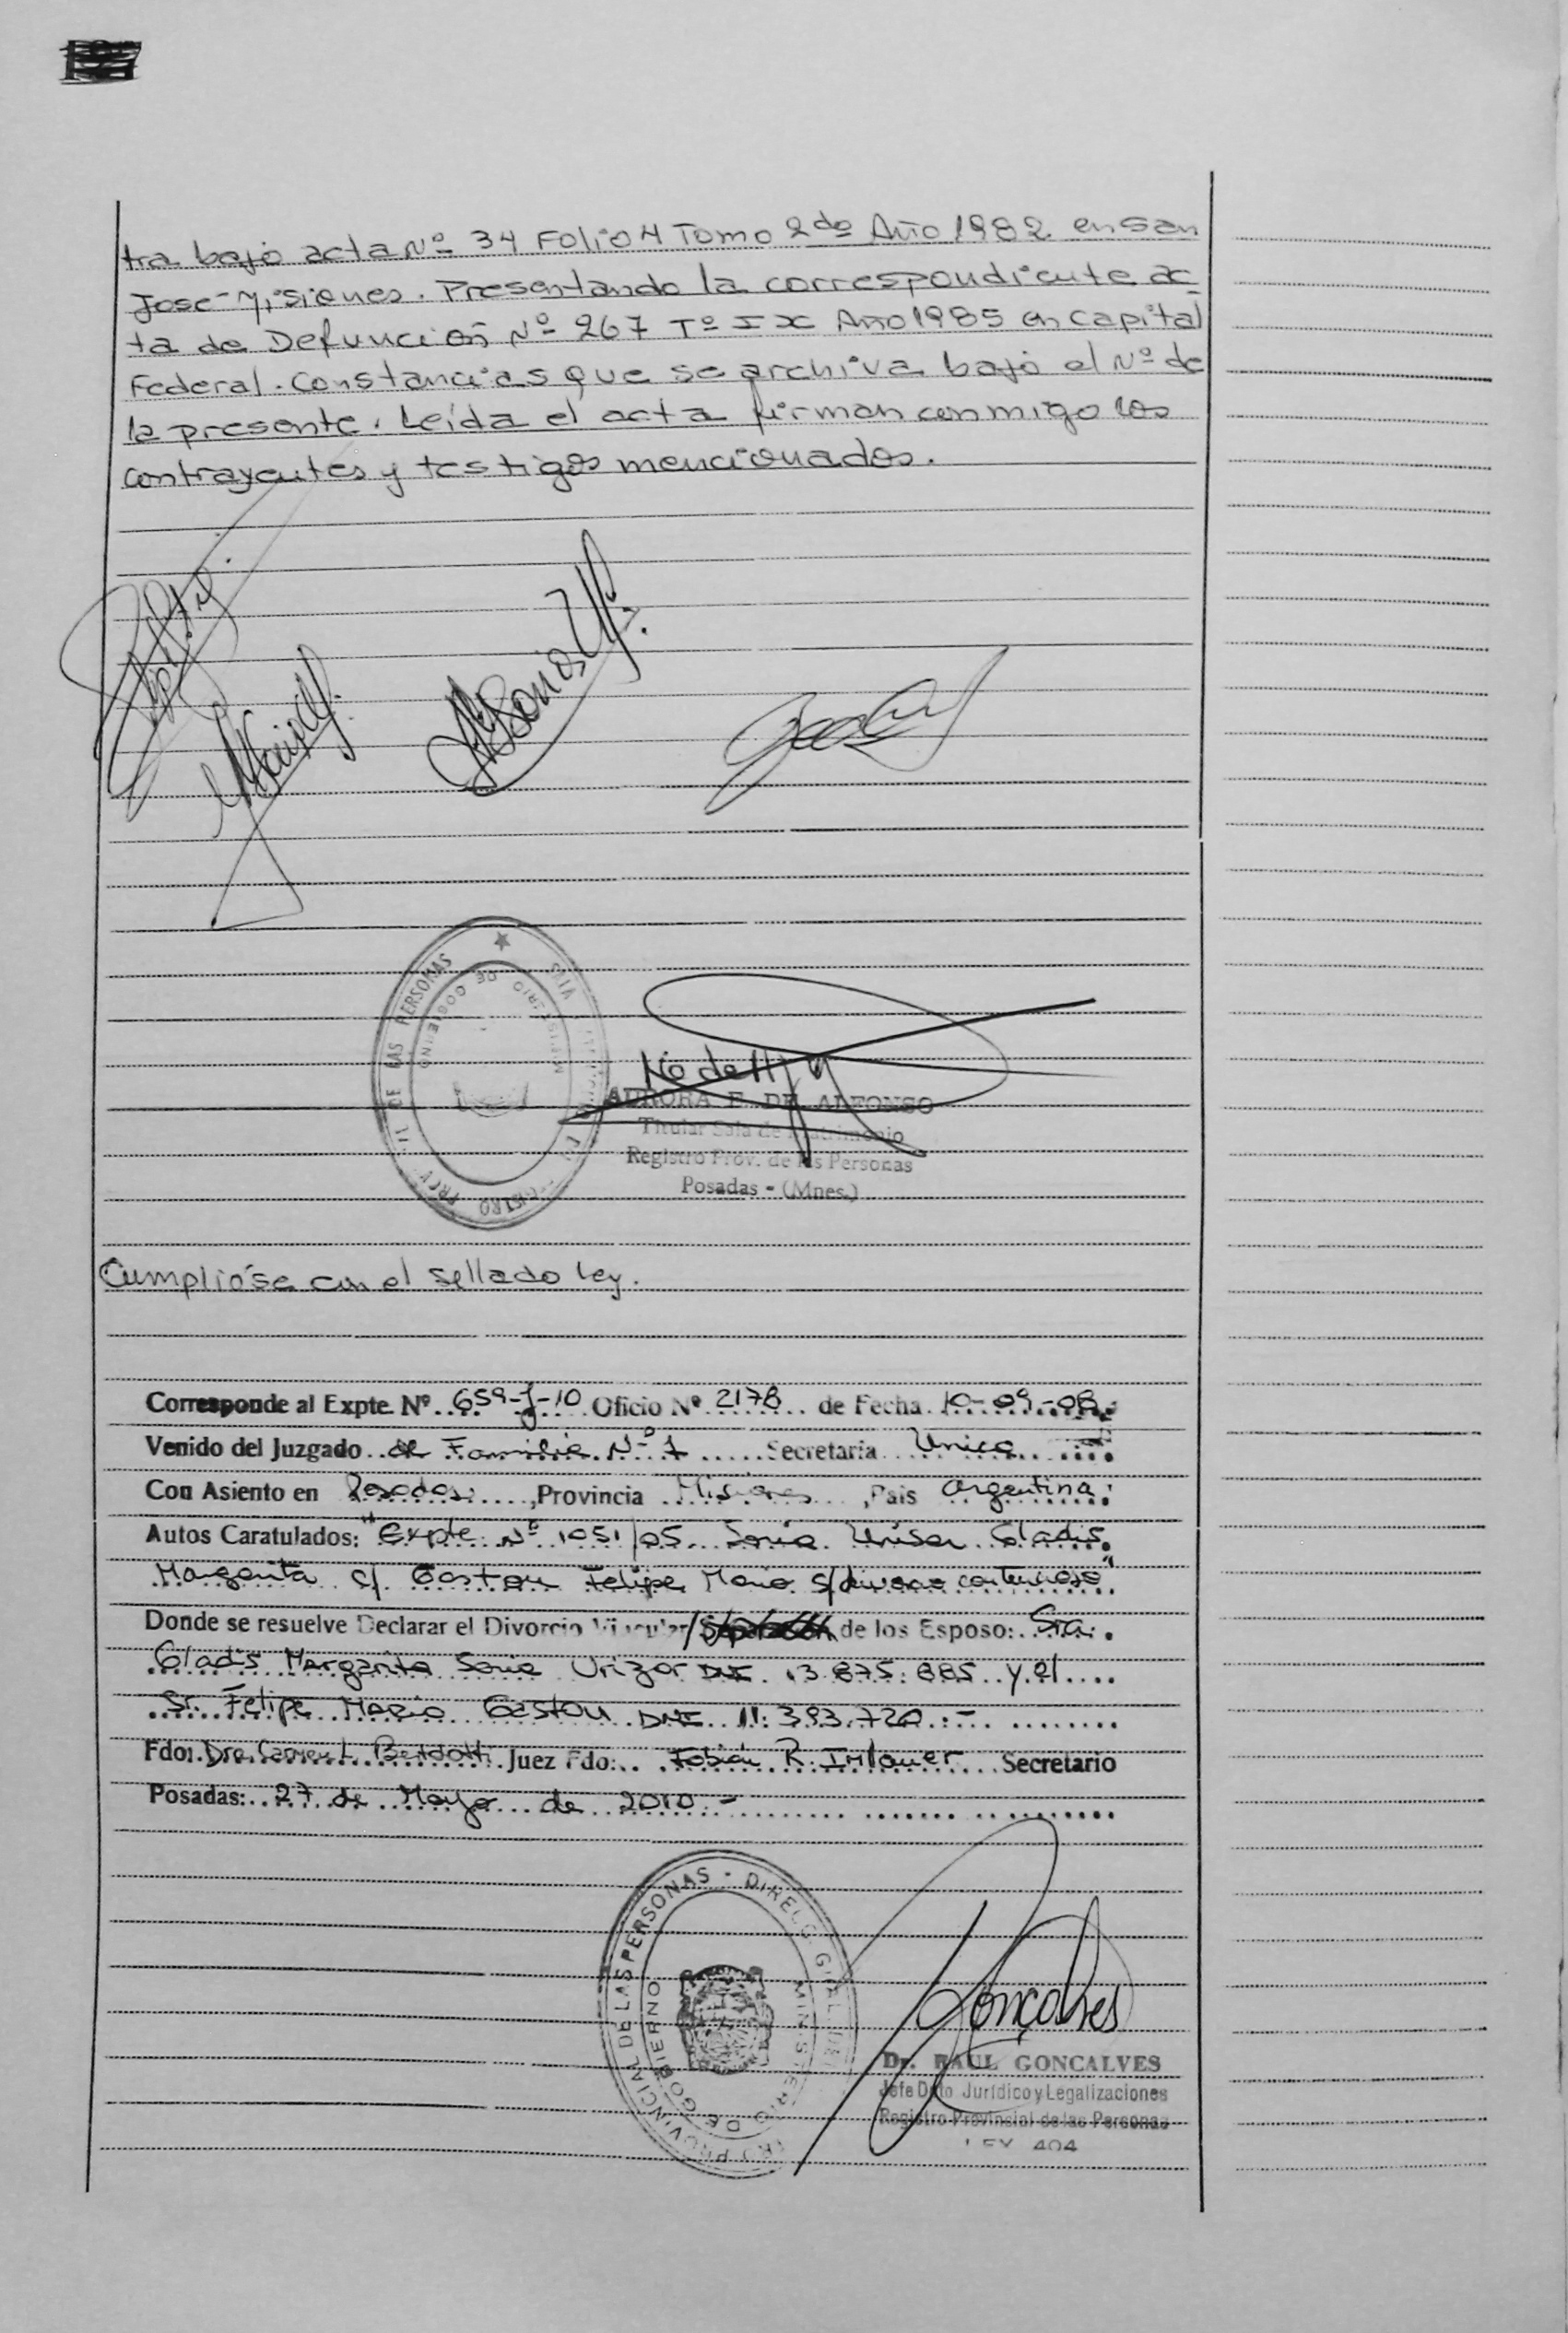 tra bajo acta Nº 34 Folio 4 Tomo 2do Año 1982 en San
José-Misiones. Presentando la correspondiente ac-
ta de Defunción Nº 267 Tº IX Año 1985 en Capital
Federal. Constancias que se archiva bajo el Nº de
la presente. Leída el acta firman conmigo los
contrayentes y testigos mencionados.
AURORA E. DE ALFONSO
Titular Sala de Matrimonio
Registro Prov. de las Personas
Posadas - (Mnes.)
Cumplióse con el sellado ley.
Corresponde al Expte. Nº 659-J-10 Oficio Nº 2178 de Fecha 10-09-08
Venido del Juzgado de Familia Nº 1 Secretaría Unica
Con Asiento en Posadas, Provincia Misiones, País Argentina
Autos Caratulados: "Expte. Nº 1051/05 Soria Gladis
Margarita c/ Gastou Felipe Mario s/divorcio contencioso"
Donde se resuelve Declarar el Divorcio Vincular/ de los Esposo: Sra.
Gladis Margarita Soria Urizar DNI 13.875.885 y el
Sr. Felipe Mario Gastou DNI 11.393.720.-
Fdo: Dra. Juez Fdo: Fabián R. Secretario
Posadas: 27 de Mayo de 2010.-
REGISTRO PROVINCIAL DE LAS PERSONAS - DIRECC. GRAL. DEL
MINISTERIO DE GOBIERNO
Gonçalves
Dr. RAUL GONCALVES
Jefe Dpto Jurídico y Legalizaciones
Registro Provincial de las Personas
LEY 404